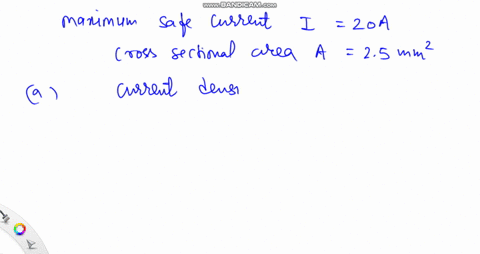 WWW.BANDICAM.COM
maximum safe current I = 20A
cross sectional area A = 2.5 mm²
(a) current dens